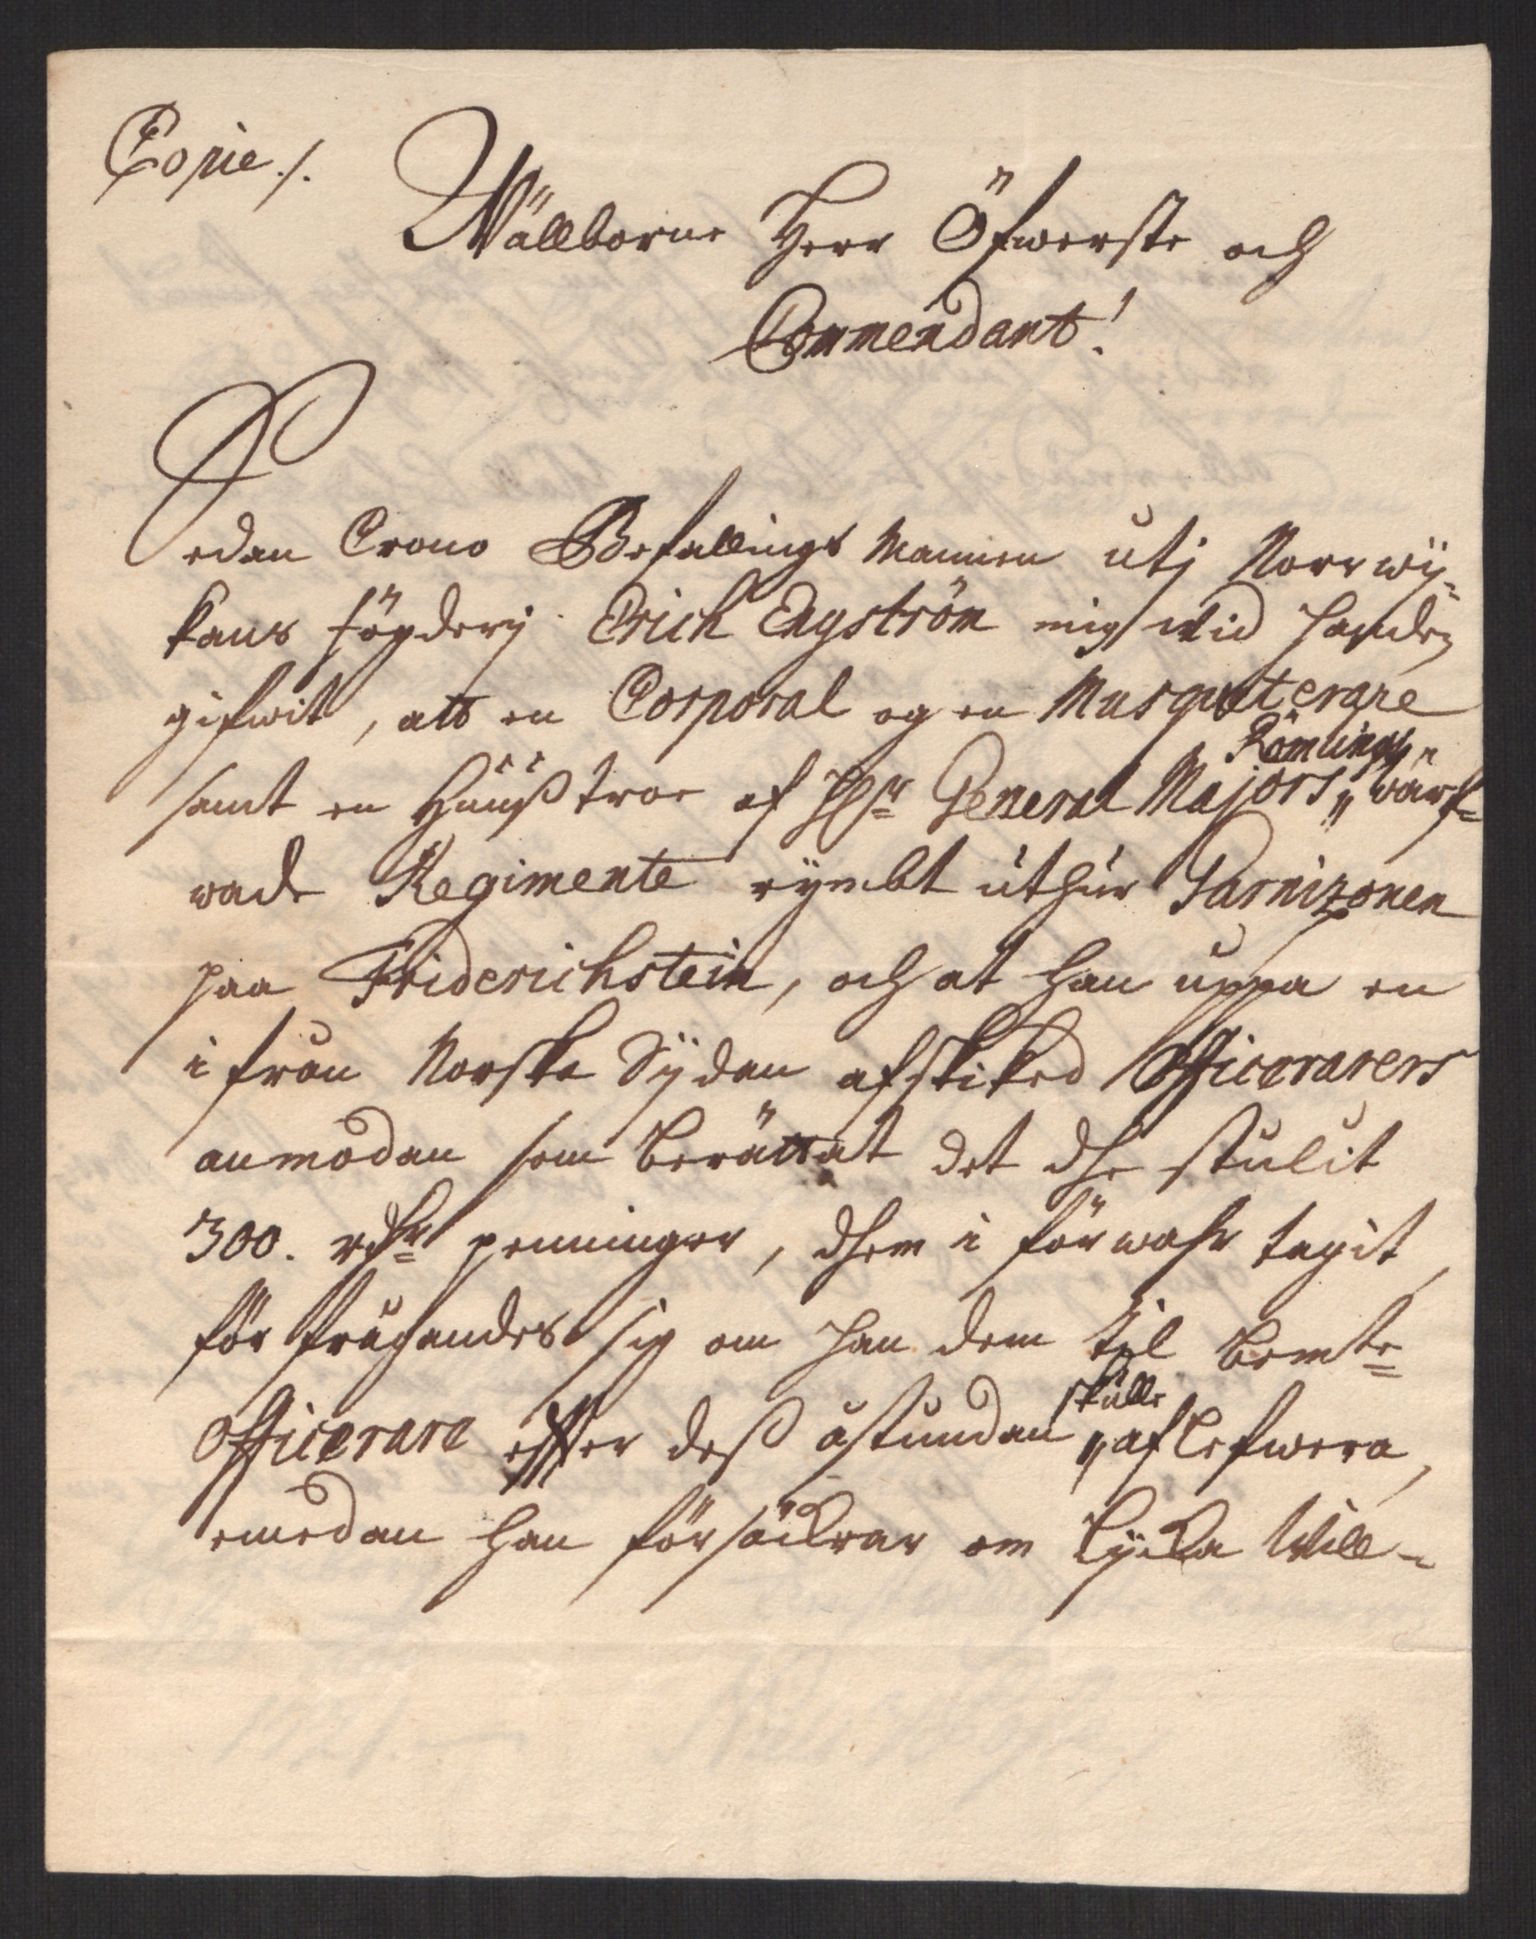 Copie ./.
Wällborne Herr Öfwerste och
Commendant!
Sedan Crono Befallings Mannen utj Norrwÿ-
kans fögderij Erich Engström mig wid handen
gifwit, att en Corporal og en Musqueterare
samt en Hüüßtroe af Hr General Majors „ Römlings „ wärf-
wade Regimente rÿmbt uthur Garnizonen
paa Friderichstein, och at han uppa en
ifrån Norska Sÿdan afskiked Officerarers
anmodan som berättat det dhe stulit
300. rdhr penningar, dhem i förwahr tagit,
för frågandes sig om han dem til bemte
Officerare effter deß åstundan „ skulle aflefwera,
emedan han försäckrar om lÿcka Will-